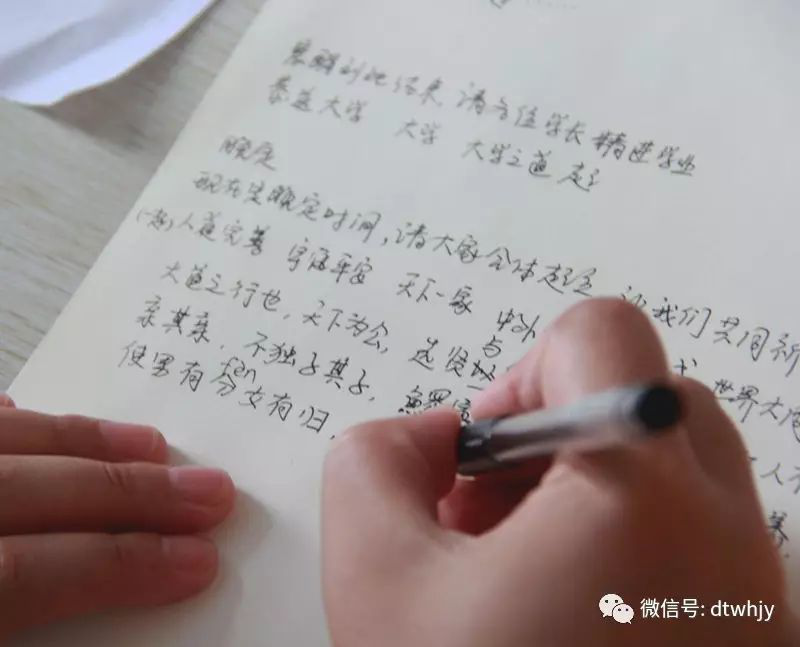 结束 请各位学长 精进学业
恭送大学 大学 大学之道 起
晚定
现在是晚定时间，请大家全体起立 让我们共同祈
(一起) 人道完善 宇宙平安 天下一家 中外
大道之行也，天下为公，选贤与 世界大
亲其亲，不独子其子， 人不
fen
使男有分女有归， 养
微信号: dtwhjy